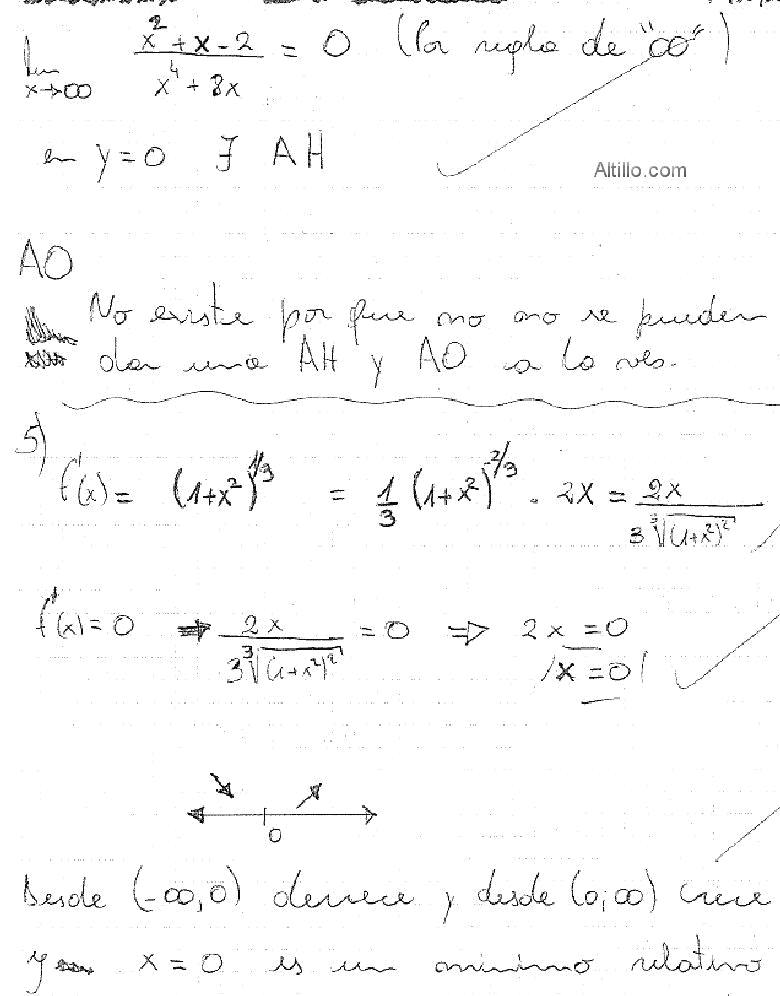 lim x→∞ (x² + x - 2)/(x⁴ + 8x) = 0 (Por regla de "∞")
en y = 0 ∃ AH
Altillo.com
AO
No existe por que no no se pueden
dar una AH y AO a la ves.
5)
f'(x) = (1+x²)^1/3 = 1/3 (1+x²)^-2/3 . 2x = 2x/(3 ∛(1+x²)²)
f'(x) = 0 ⇒ 2x/(3 ∛(1+x²)²) = 0 ⇒ 2x = 0
/x = 0/
0
Desde (-∞,0) decrece y desde (0;∞) crece
y x = 0 es un minimo relativo